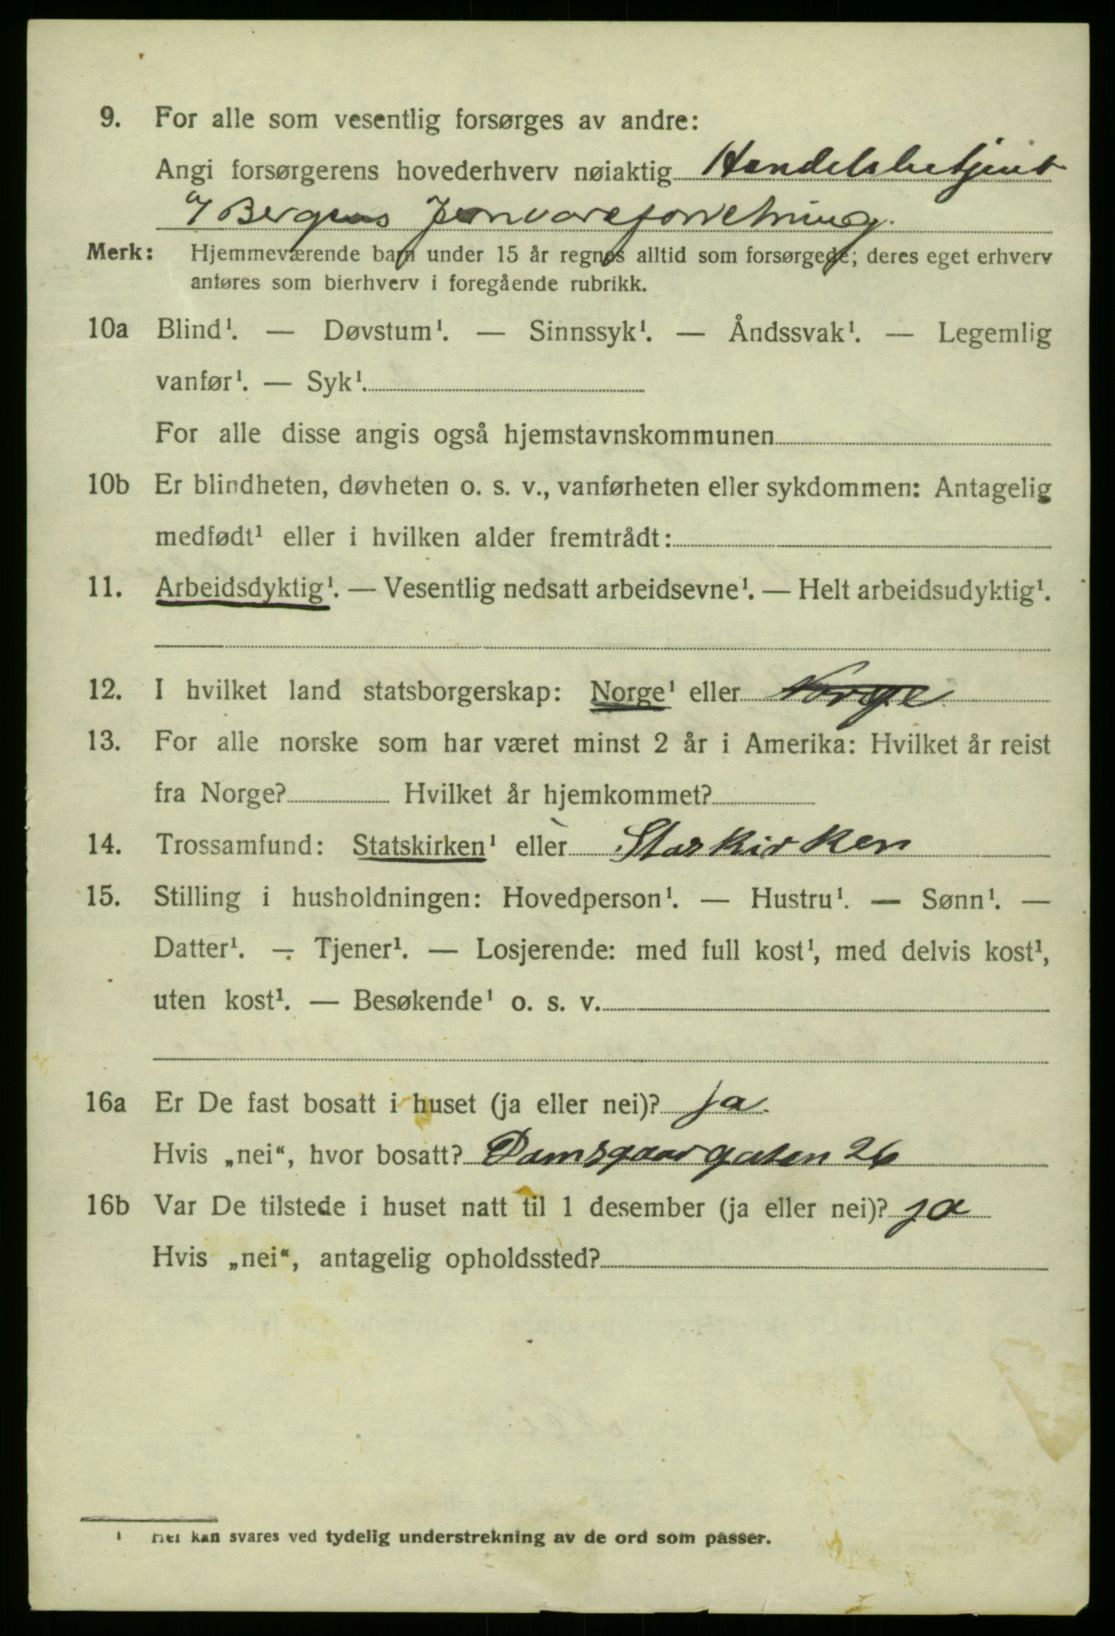 9. For alle som vesentlig forsørges av andre:
Angi forsørgerens hovederhverv nøiaktig Handelsbetjent
a/ Bergens Jernvareforretning.
Merk: Hjemmeværende barn under 15 år regnes alltid som forsørgede; deres eget erhverv
anføres som bierhverv i foregående rubrikk.
10a Blind¹. — Døvstum¹. — Sinnssyk¹. — Åndssvak¹. — Legemlig
vanfør¹. — Syk¹.
For alle disse angis også hjemstavnskommunen
10b Er blindheten, døvheten o. s. v., vanførheten eller sykdommen: Antagelig
medfødt¹ eller i hvilken alder fremtrådt:
11. Arbeidsdyktig¹. — Vesentlig nedsatt arbeidsevne¹. — Helt arbeidsudyktig¹.
12. I hvilket land statsborgerskap: Norge¹ eller Norge
13. For alle norske som har været minst 2 år i Amerika: Hvilket år reist
fra Norge? Hvilket år hjemkommet?
14. Trossamfund: Statskirken¹ eller Staskirken
15. Stilling i husholdningen: Hovedperson¹. — Hustru¹. — Sønn¹. —
Datter¹. — Tjener¹. — Losjerende: med full kost¹, med delvis kost¹,
uten kost¹. — Besøkende¹ o. s. v.
16a Er De fast bosatt i huset (ja eller nei)? ja.
Hvis „nei“, hvor bosatt? Damsgaargaten 26
16b Var De tilstede i huset natt til 1 desember (ja eller nei)? ja
Hvis „nei“, antagelig opholdssted?
¹ Her kan svares ved tydelig understrekning av de ord som passer.